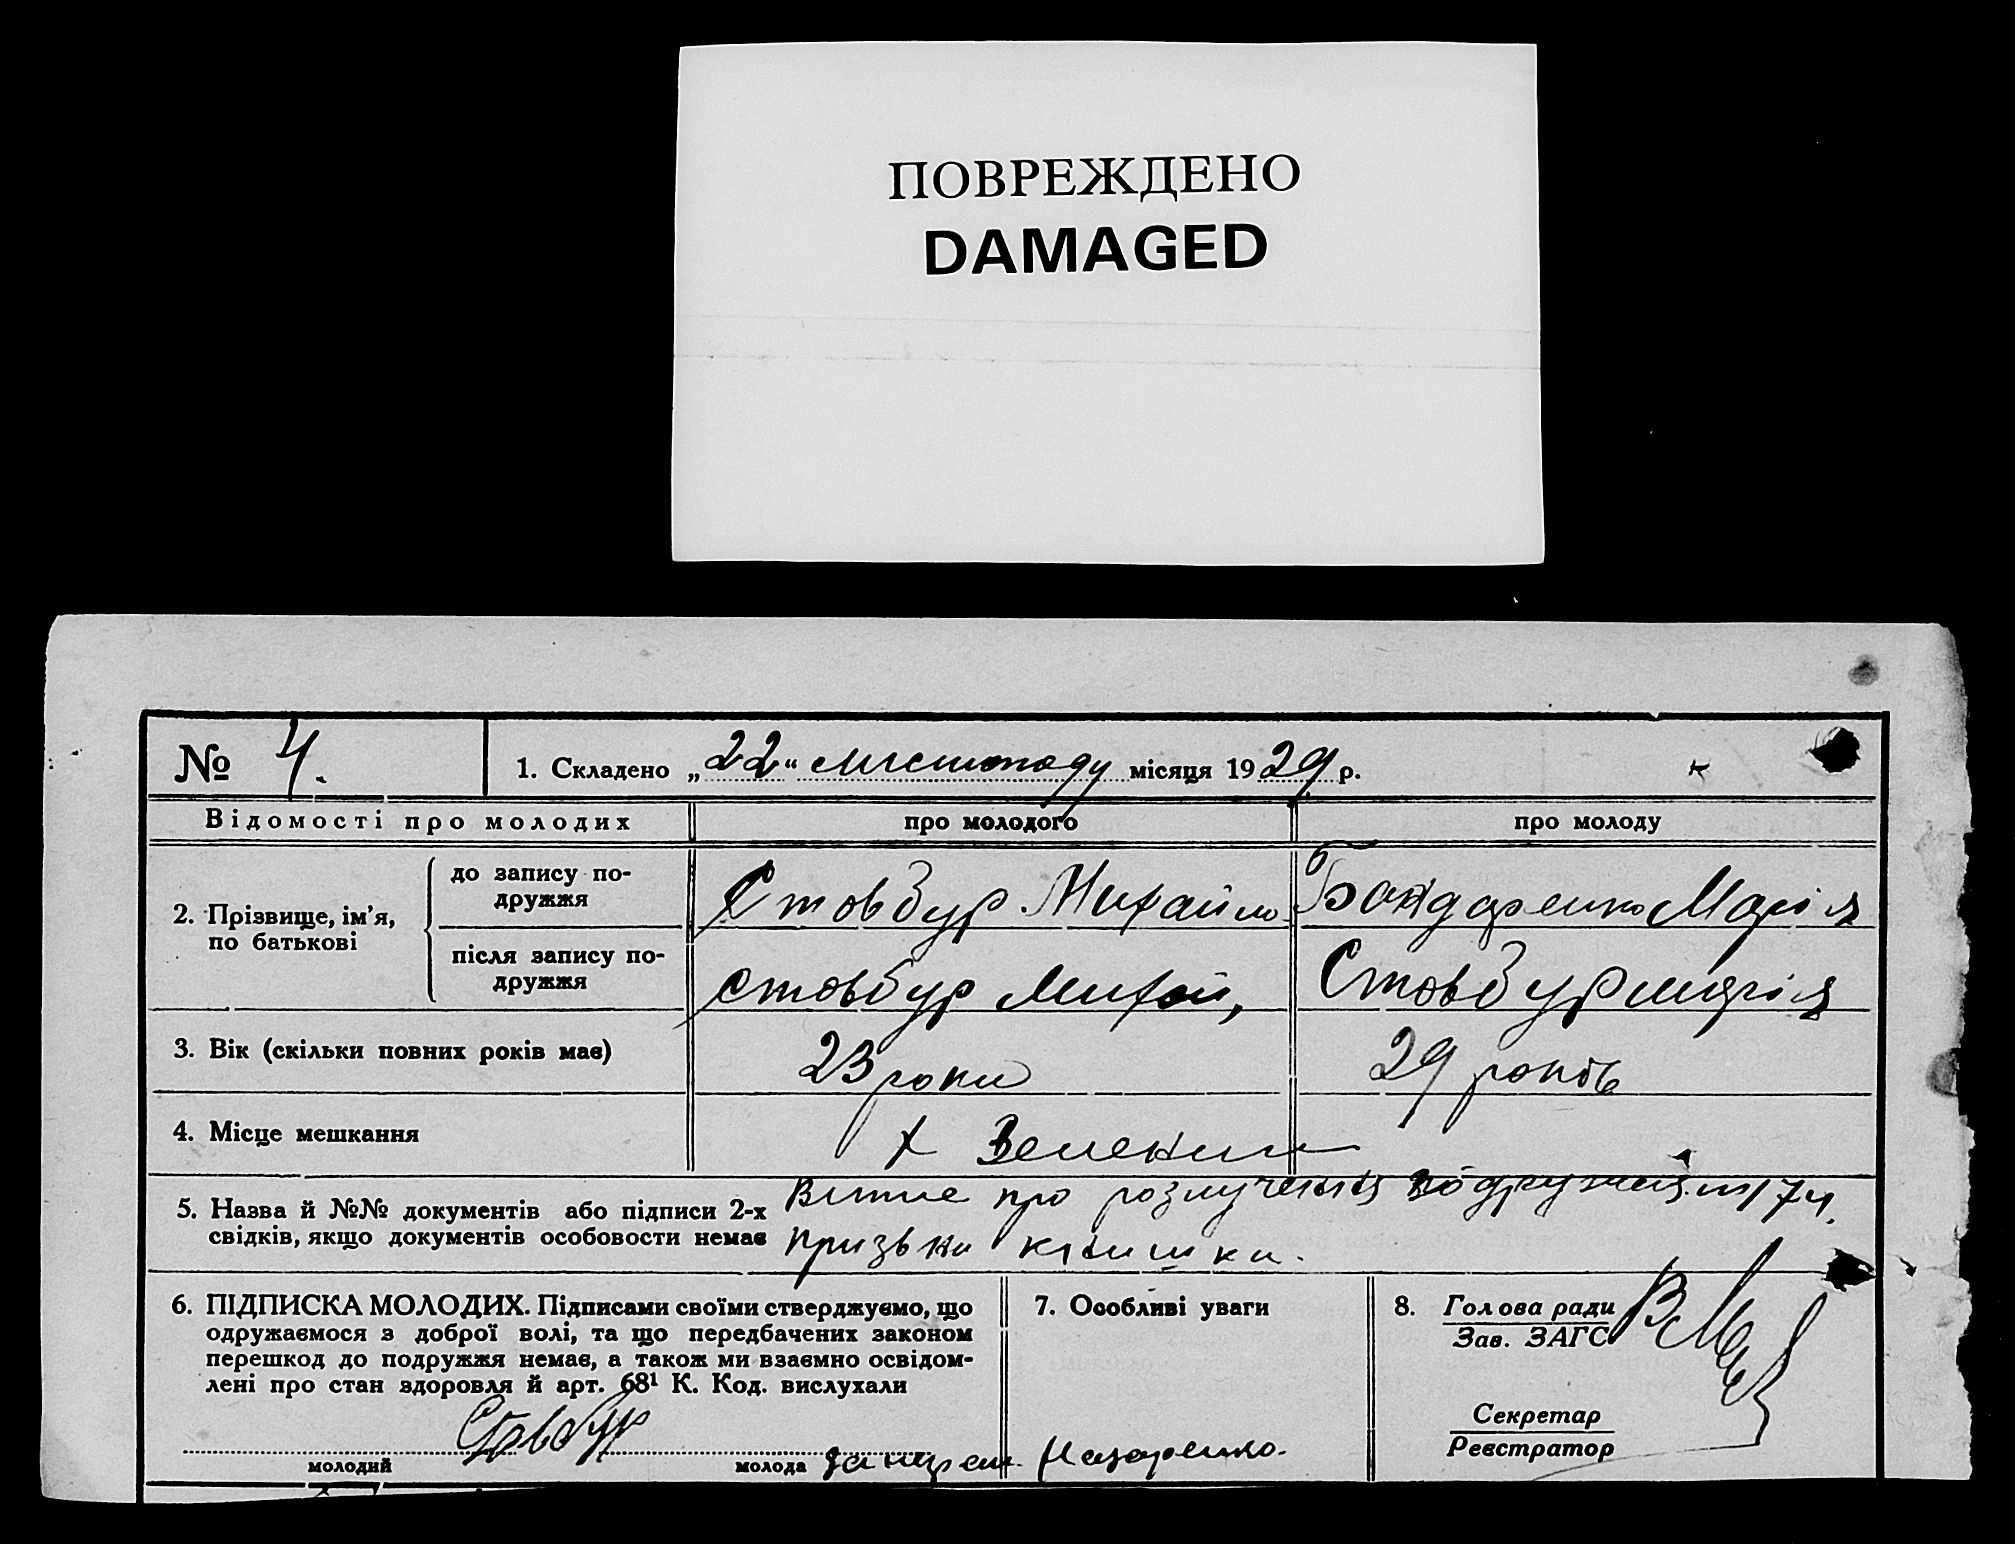 ПОВРЕЖДЕНО
DAMAGED
№ 4. 1. Складено „22“ листопаду місяця 1929 р.
Відомості про молодих про молодого про молоду
2. Прізвище, ім’я, по батькові
до запису по-
дружжя
Стовбур Михайло Бондаренко Марія
після запису по-
дружжя
Стовбур Михай, Стовбур Марія
3. Вік (скільки повних років має) 23 роки 29 років
4. Місце мешкання х
5. Назва й №№ документів або підписи 2-х
свідків, якщо документів особовости немає
про розлучення подружжя 174.
призьвн книшка.
6. ПІДПИСКА МОЛОДИХ. Підписами своїми стверджуємо, що
одружаємося з доброї волі, та що передбачених законом
перешкод до подружжя немає, а також ми взаємно освідом-
лені про стан здоровля й арт. 68¹ К. Код. вислухали
Стовбур
молодий молода Назаренко.
7. Особливі уваги
8. Голова ради
Зав. ЗАГС
Секретар
Реєстратор